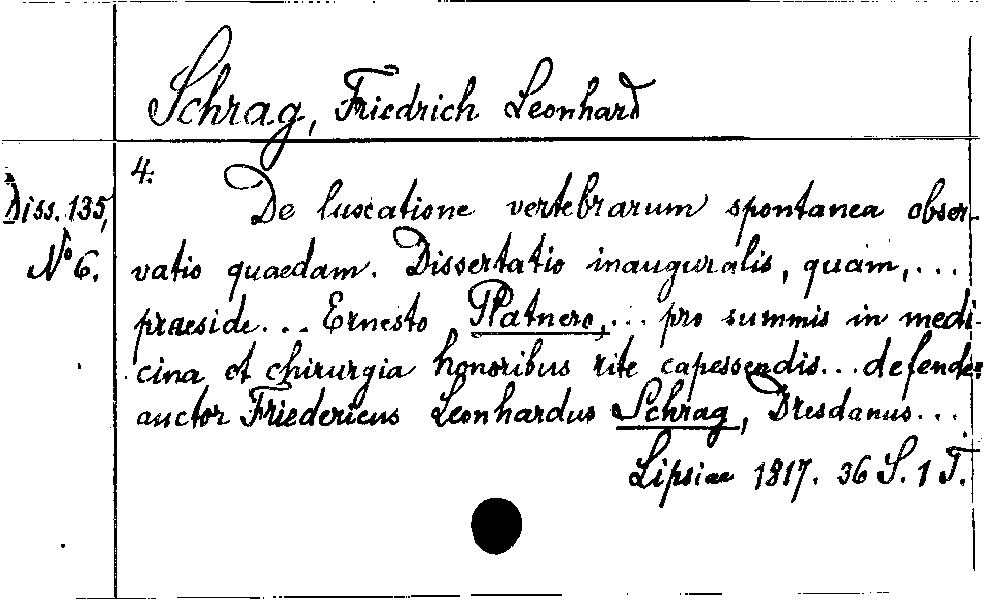 Schrag, Friedrich Leonhard
4.
Diss. 135,
No 6.
De luxatione vertebrarum spontanea obser-
vatio quaedam. Dissertatio inauguralis, quam, ...
praeside ... Ernesto Platnero, ... pro summis in medi-
cina et chirurgia honoribus rite capessendis ... defendet
auctor Friedericus Leonhardus Schrag, Dresdanus ...
Lipsiae 1817. 36 S. 1 T.